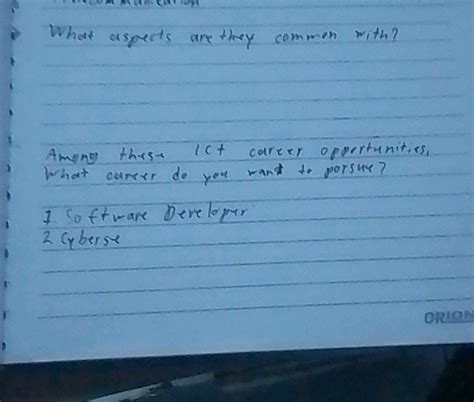 What aspects are they common with?
Among these ICt career opportunities,
What career do you want to porsue?
1 Software Developer
2 Cyberse
ORION